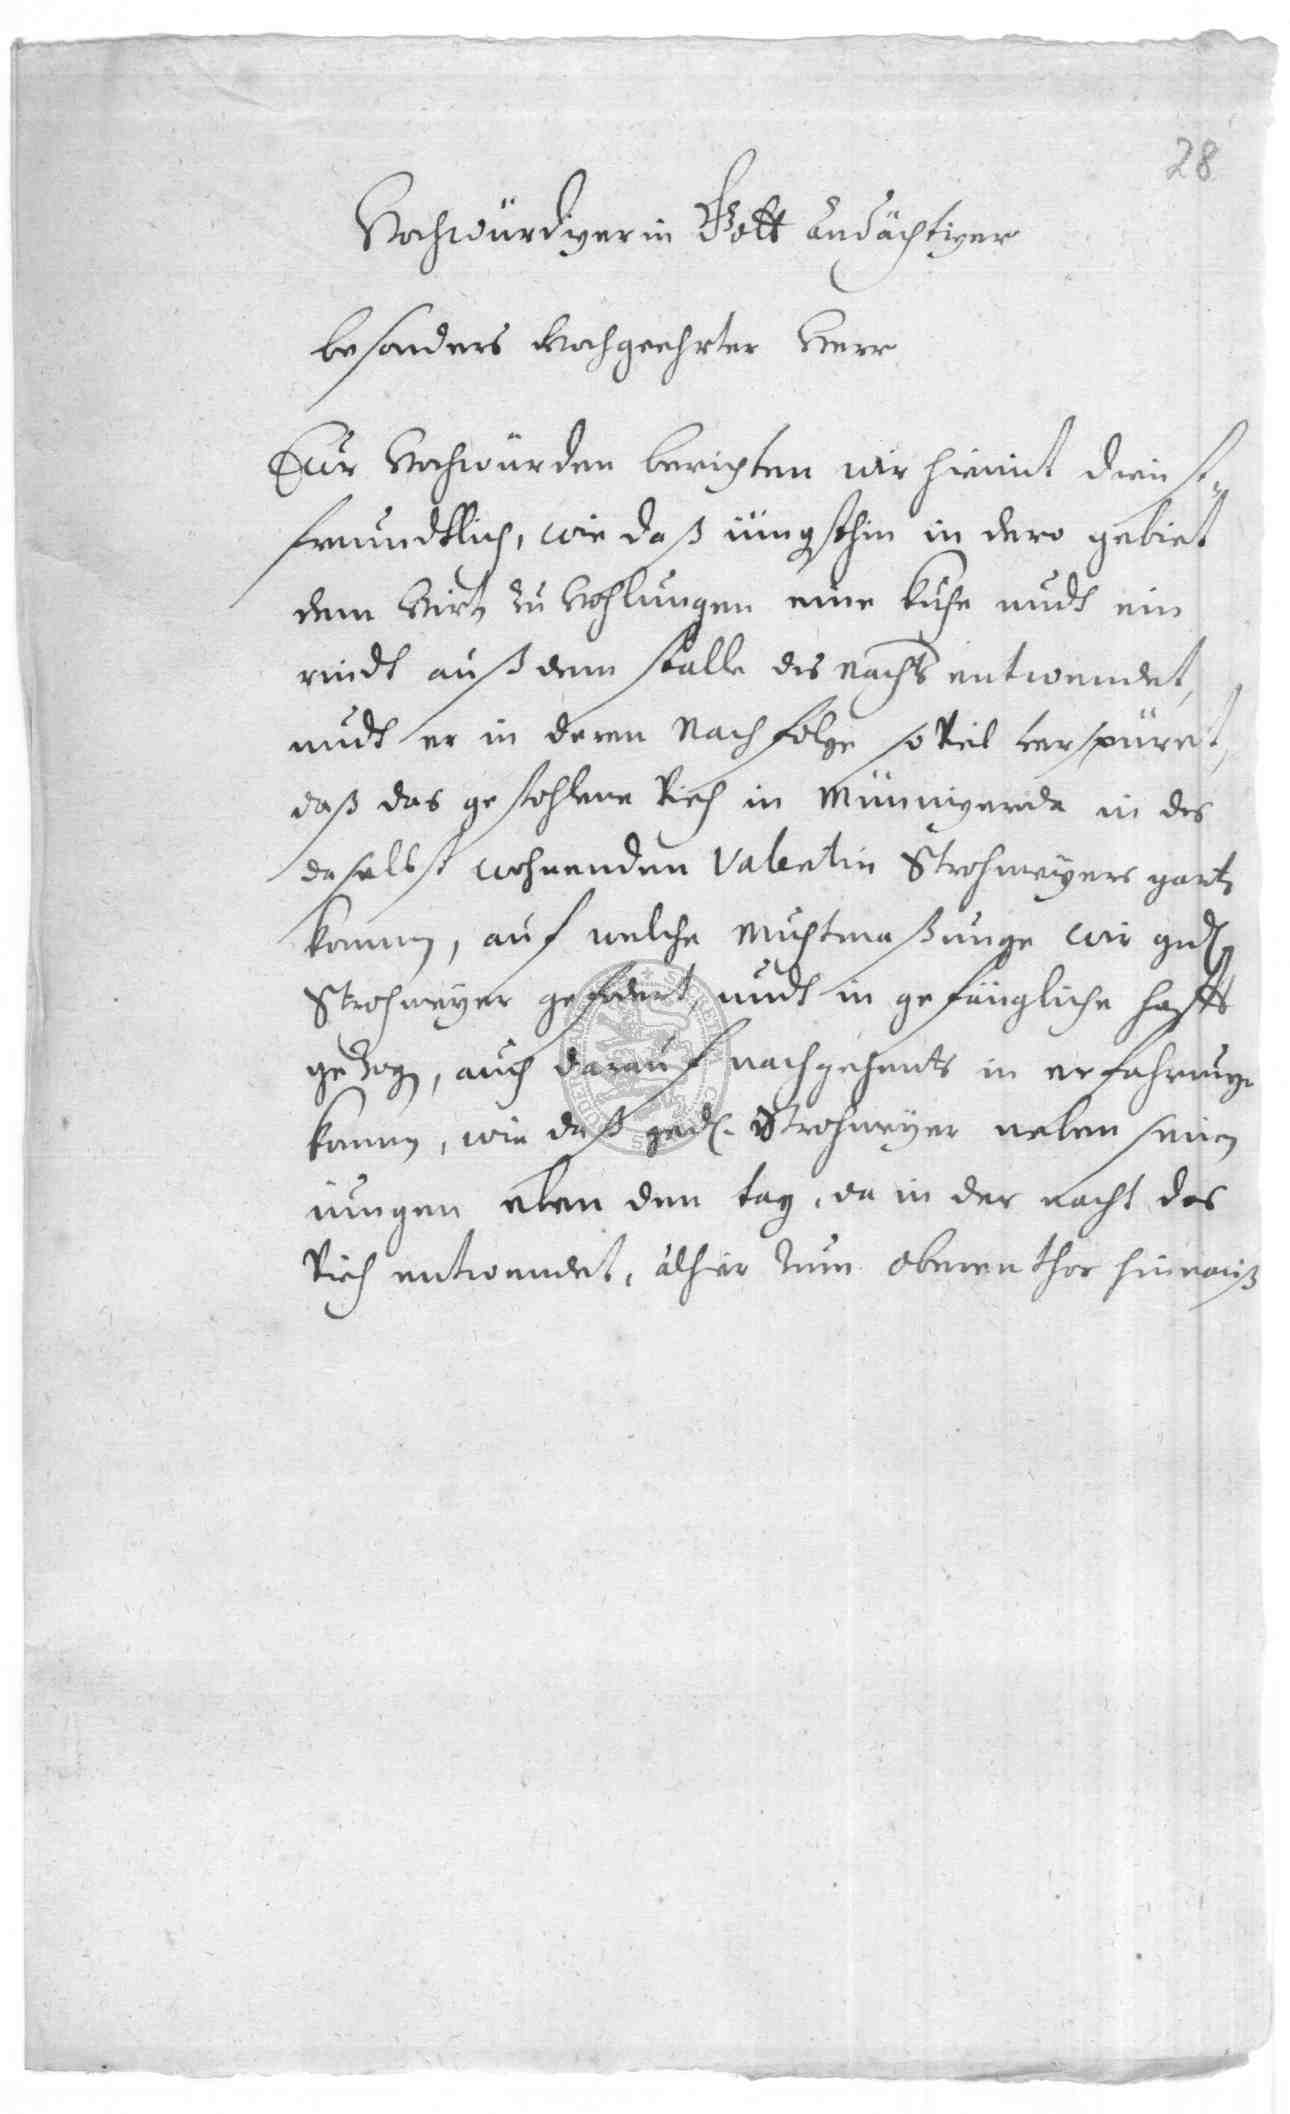 28
Hochwürdiger in Gott andächtiger
besonders Hochgeehrter Herr
Eür Hochwürden berichten wir hiemit dienst-
freundtlich, wie daß iüngsthin in dero gebiet
dem Wirt zu eine kuhe undt ein
rindt auß dem stalle des nachts entwendet,
undt er in deren Nachfolge so viel verspüret,
daß das gestohlene Vieh in Münnigerida in des
daselbst wohnenden Valentin Strohmeyers gart
komen, auf welche Muhtmaßunge wir gedl
Strohmeyer gefodert, undt in gefängliche hafft
gezogen, auch darauf nachgehents in erfahrunge
komen, wie daß gedl. Strohmeyer neben seinen
iungen eben den tag, da in der nacht das
Vieh entwendet, alhier zum oberen thor hinauß